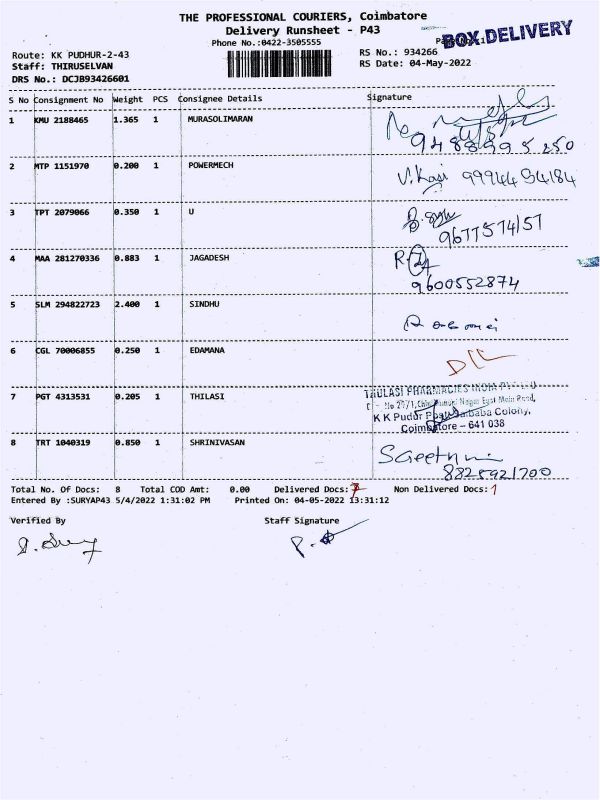 THE PROFESSIONAL COURIERS, Coimbatore
Delivery Runsheet - P43
BOX DELIVERY
Phone No.:0422-3505555
Route: KK PUDHUR-2-43
RS No.: 934266
Staff: THIRUSELVAN
RS Date: 04-May-2022
DRS No.: DCJB93426601
S No Consignment No Weight PCS Consignee Details Signature
1 KMU 2188465 1.365 1 MURASOLIMARAN
2 MTP 1151970 0.200 1 POWERMECH V.Kasi 99944 94184
3 TPT 2079066 0.350 1 U
9677574157
4 MAA 281270336 0.883 1 JAGADESH
9600552874
5 SLM 294822723 2.400 1 SINDHU
6 CGL 70006855 0.250 1 EDAMANA
7 PGT 4313531 0.205 1 THILASI
THULASI PHARMACIES INDIA
K K Pudur Post, Saibaba Colony,
Coimbatore – 641 038
8 TRT 1040319 0.850 1 SHRINIVASAN
8825921700
Total No. Of Docs: 8 Total COD Amt: 0.00 Delivered Docs: 7 Non Delivered Docs: 1
Entered By :SURYAP43 5/4/2022 1:31:02 PM Printed On: 04-05-2022 13:31:12
Verified By Staff Signature